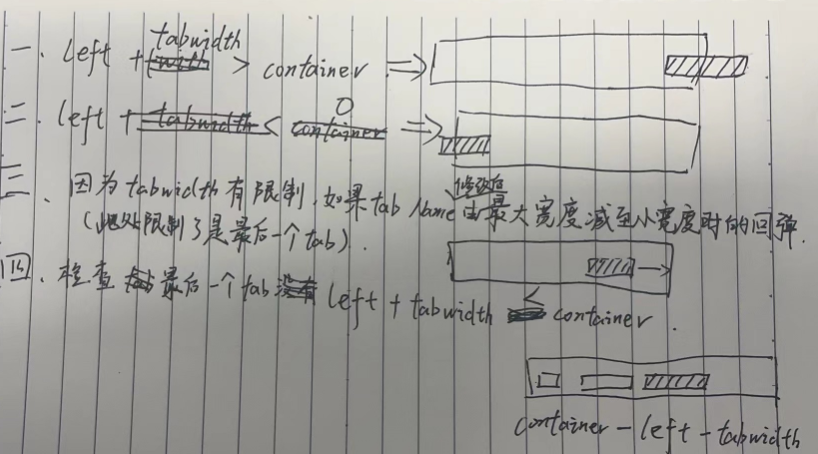 一. left + tabwidth > container ⇒
二. left < 0 ⇒
三. 因为tabwidth有限制,如果tab Name修改后由最大宽度减至小宽度时的回弹.
(此处限制了是最后一个tab).
四. 检查最后一个tab left + tabwidth < container.
container - left - tabwidth